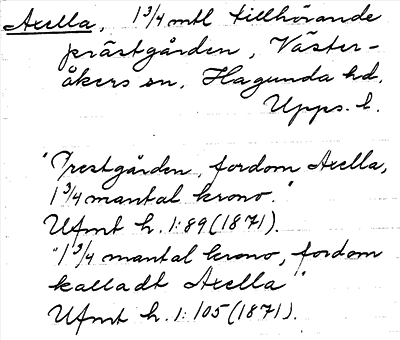 Axella, 1 3/4 mtl tillhörande
prästgården, Väster-
åkers sn, Hagunda hd,
Upps. l.
"Prestgården, fordom Axella,
1 3/4 mantal krono."
Ufmt h. 1:89 (1871).
"1 3/4 mantal krono, fordom
kalladt Axella"
Ufmt h. 1:105 (1871).